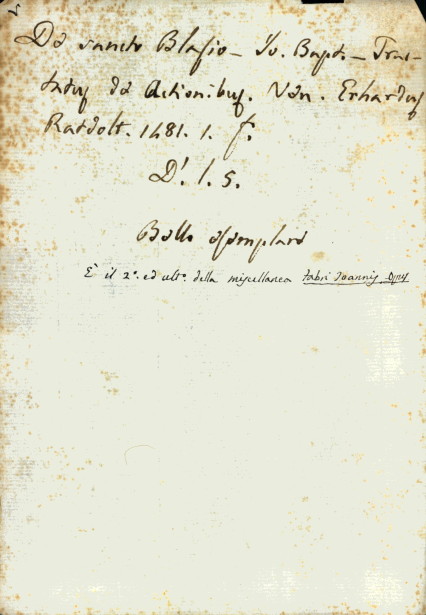 De sancto Blasio – Jo. Bapt. – Trac-
tatus de Actionibus. Ven. Erhardus
Ratdolt. 1481. 1. f.
D. 1. 5.
Bello esemplare
È il 2º. ed ultº. della miscellanea Fabri Joannis